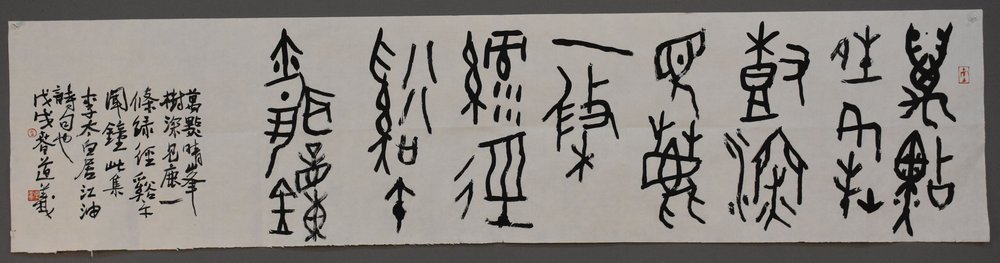 萬點
晴峯
樹深
見鹿
一條
綠徑
谿午
聞鐘
萬點晴峯
樹深見鹿一
條綠徑谿午
聞鐘此集
李太白居江油
詩句也
戊戌春道義